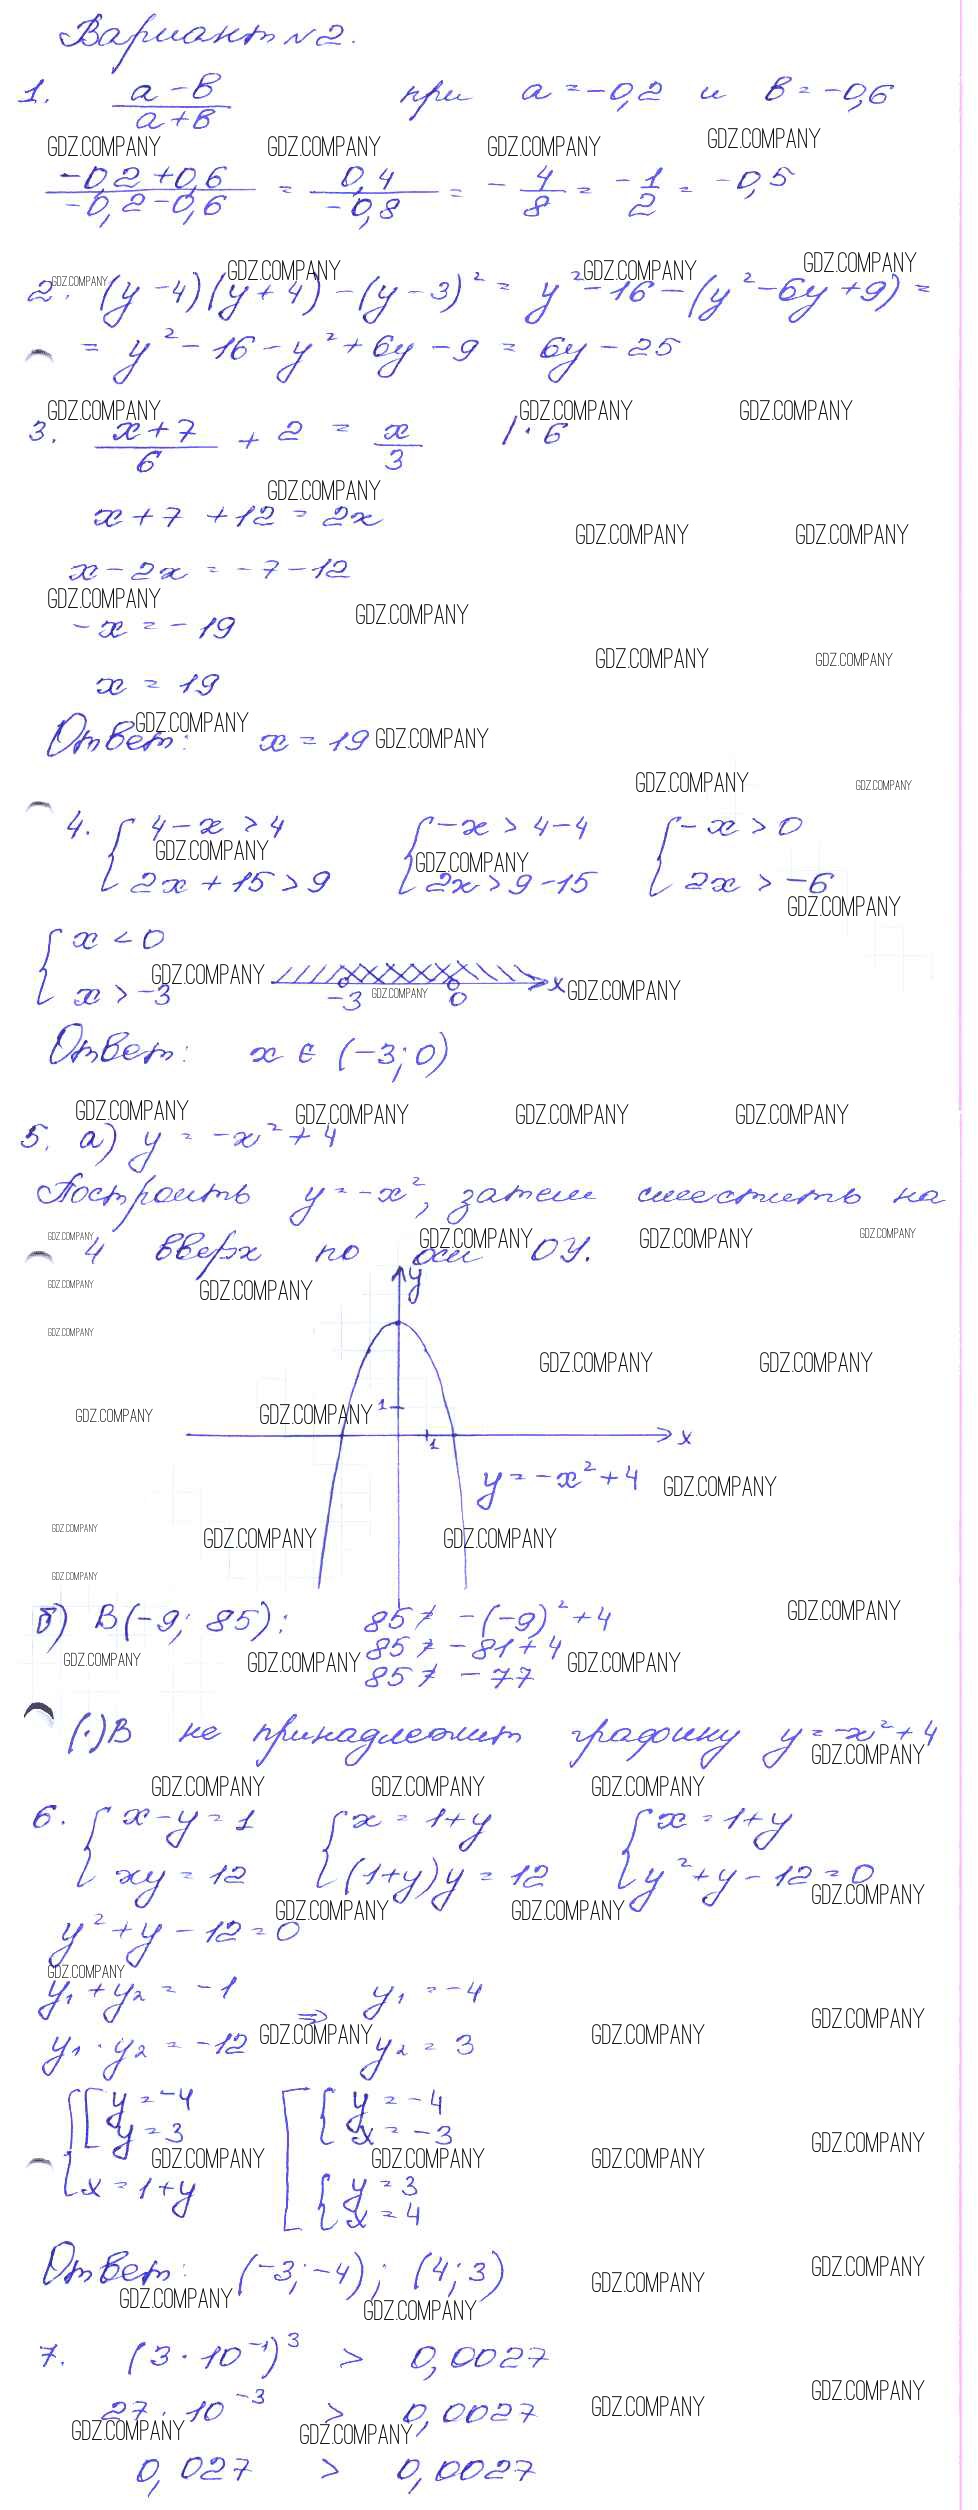 Вариант N2.
1. (a-в)/(a+в) при a=-0,2 и в=-0,6
GDZ.COMPANY GDZ.COMPANY GDZ.COMPANY GDZ.COMPANY
(-0,2+0,6)/(-0,2-0,6) = 0,4/(-0,8) = -4/8 = -1/2 = -0,5
GDZ.COMPANY GDZ.COMPANY GDZ.COMPANY GDZ.COMPANY
2. (y-4)(y+4)-(y-3)² = y²-16-(y²-6y+9) =
= y²-16-y²+6y-9 = 6y-25
GDZ.COMPANY GDZ.COMPANY GDZ.COMPANY
3. (x+7)/6 + 2 = x/3 |·6
GDZ.COMPANY
x+7+12=2x
GDZ.COMPANY GDZ.COMPANY
x-2x=-7-12
GDZ.COMPANY GDZ.COMPANY
-x=-19
GDZ.COMPANY GDZ.COMPANY
x=19
GDZ.COMPANY
Ответ: x=19 GDZ.COMPANY
GDZ.COMPANY GDZ.COMPANY
4. {4-x>4 {-x>4-4 {-x>0
GDZ.COMPANY GDZ.COMPANY
2x+15>9 2x>9-15 2x>-6
GDZ.COMPANY
{x<0
x>-3 GDZ.COMPANY -3 GDZ.COMPANY 0 x GDZ.COMPANY
Ответ: x∈(-3;0)
GDZ.COMPANY GDZ.COMPANY GDZ.COMPANY GDZ.COMPANY
5. а) y=-x²+4
Построить y=-x², затем сместить на
GDZ.COMPANY GDZ.COMPANY GDZ.COMPANY GDZ.COMPANY
4 вверх по оси ОУ.
GDZ.COMPANY GDZ.COMPANY y
GDZ.COMPANY
GDZ.COMPANY GDZ.COMPANY
GDZ.COMPANY GDZ.COMPANY 1
1 x
y=-x²+4 GDZ.COMPANY
GDZ.COMPANY GDZ.COMPANY GDZ.COMPANY
GDZ.COMPANY
б) B(-9; 85): 85≠-(-9)²+4 GDZ.COMPANY
85≠-81+4
GDZ.COMPANY GDZ.COMPANY GDZ.COMPANY
85≠-77
(·)B не принадлежит графику y=-x²+4
GDZ.COMPANY
GDZ.COMPANY GDZ.COMPANY GDZ.COMPANY
6. {x-y=1 {x=1+y {x=1+y
xy=12 (1+y)y=12 y²+y-12=0
GDZ.COMPANY GDZ.COMPANY GDZ.COMPANY
y²+y-12=0
GDZ.COMPANY
y₁+y₂=-1 y₁=-4
⇒ GDZ.COMPANY GDZ.COMPANY GDZ.COMPANY
y₁·y₂=-12 y₂=3
{[y=-4 [{y=-4
y=3 x=-3
GDZ.COMPANY GDZ.COMPANY GDZ.COMPANY GDZ.COMPANY
x=1+y {y=3
x=4
Ответ: (-3;-4); (4;3)
GDZ.COMPANY GDZ.COMPANY GDZ.COMPANY GDZ.COMPANY
7. (3·10⁻¹)³ > 0,0027
GDZ.COMPANY GDZ.COMPANY
27·10⁻³ > 0,0027
GDZ.COMPANY GDZ.COMPANY
0,027 > 0,0027